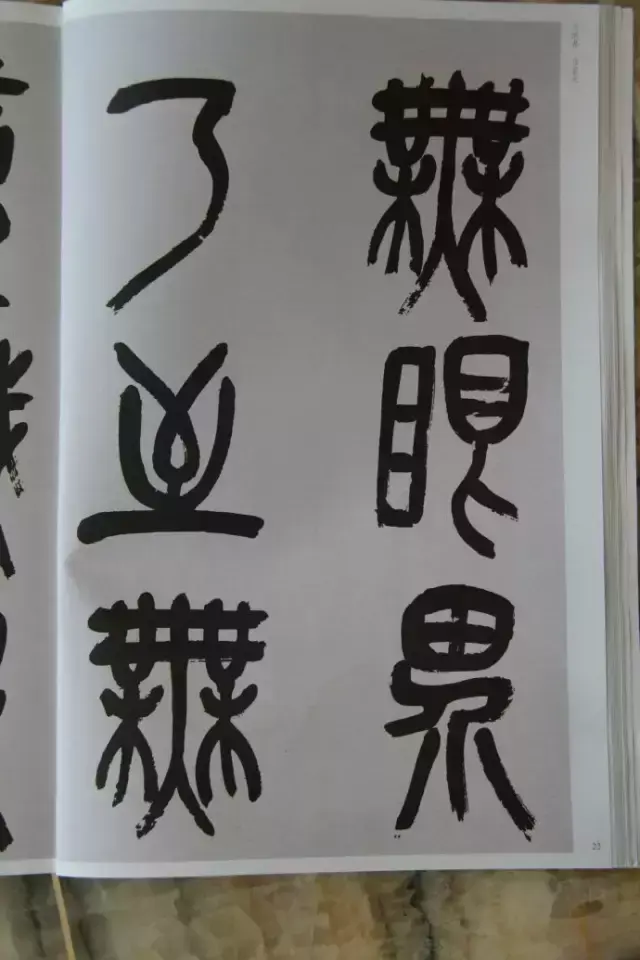 無眼界
乃至無
22